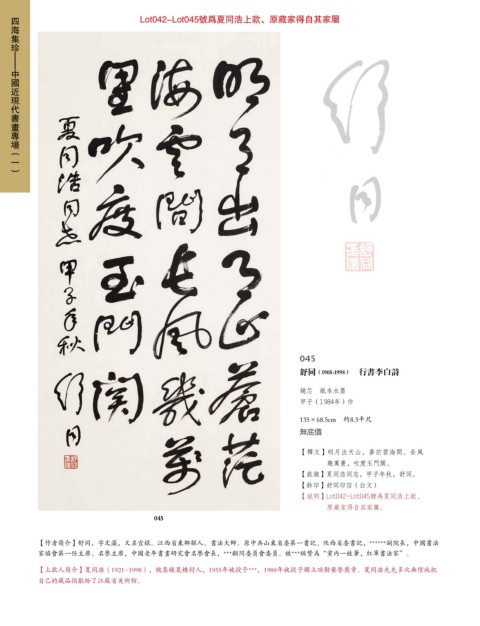 Lot042-Lot045號爲夏同浩上款、原藏家得自其家屬
四海集珍——中國近現代書畫專場（一）
明月出天山蒼茫
海雲間長風幾萬
里吹度玉門關
夏同浩同志 甲子年秋 舒同
舒同
045
舒同（1905-1998） 行書李白詩
鏡芯 紙本水墨
甲子（1984年）作
135×68.5cm 約8.3平尺
無底價
【釋文】明月出天山，蒼茫雲海間。長風
幾萬里，吹度玉門關。
【款識】夏同浩同志，甲子年秋，舒同。
【鈐印】舒同印信（白文）
【說明】Lot042-Lot045號爲夏同浩上款，
原藏家得自其家屬。
045
【作者簡介】舒同，字文藻，又名宜祿。江西省東鄉縣人。書法大師。原中共山東省委第一書記、陝西省委書記，******副院長，中國書法
家協會第一任主席、名譽主席，中國老年書畫研究會名譽會長，***顧問委員會委員。被***稱譽爲“黨內一枝筆，紅軍書法家”。
【上款人簡介】夏同浩（1921-1998），魏集鎮夏樓村人，1955年被授予***，1988年被授予獨立功勛榮譽章。夏同浩先生多次無償地把
自己的藏品捐獻給了江蘇省美術館。